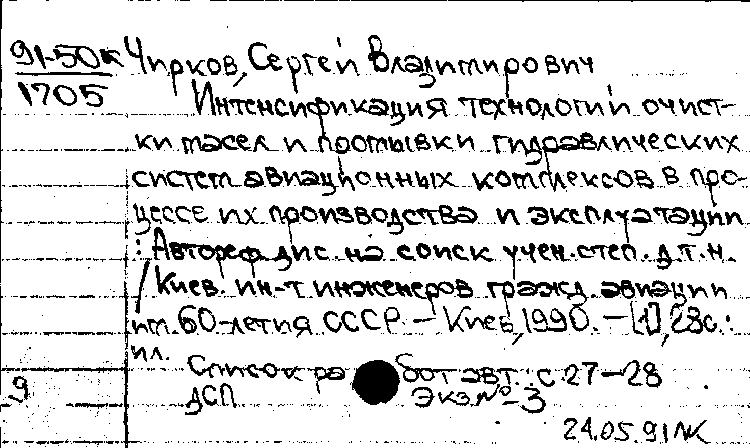 91-50к Чирков, Сергей Владимирович
1705 Интенсификация технологии очист-
ки масел и промывки гидравлических
систем авиационных комплексов в про-
цессе их производства и эксплуатации
: Автореф. дис. на соиск. учен. степ. д.т.н.
/ Киев. ин-т инженеров гражд. авиации
им. 60-летия СССР. – Киев, 1990. – [1], 28с.:
ил.
Список работ авт.: с. 27–28
9 ДСП Экз № -3
24.05.91